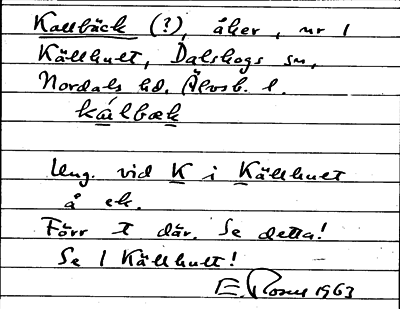 Kallbäck (?), åker, nr 1
Källhult, Dalskogs sn,
Nordals hd. Älvsb. l.
kálbæk
Ung. vid K i Källhult
å ek.
Förr t där. Se detta!
Se 1 Källhult!
E. Rosen 1963